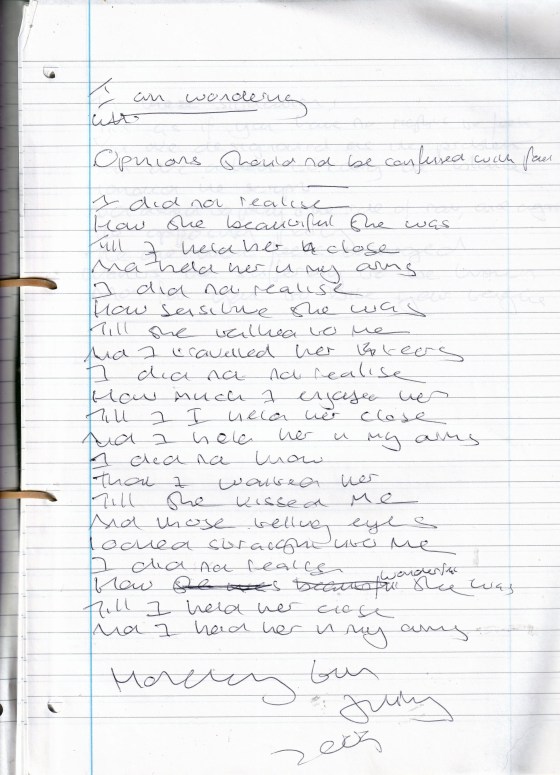 I am wondering
Opinions should not be confused with
I did not realise
How she beautiful she was
Till I held her close
And held her in my arms
I did not realise
How sensitive she was
Till she talked to me
And I travelled her
I did not not realise
How much I enjoyed her
Till I I held her close
And I held her in my arms
I did not know
That I wanted her
Till she kissed me
And those telling eyes
Looked straight into me
I did not realise
How she was beautiful wonderful she was
Till I held her close
And I held her in my arms